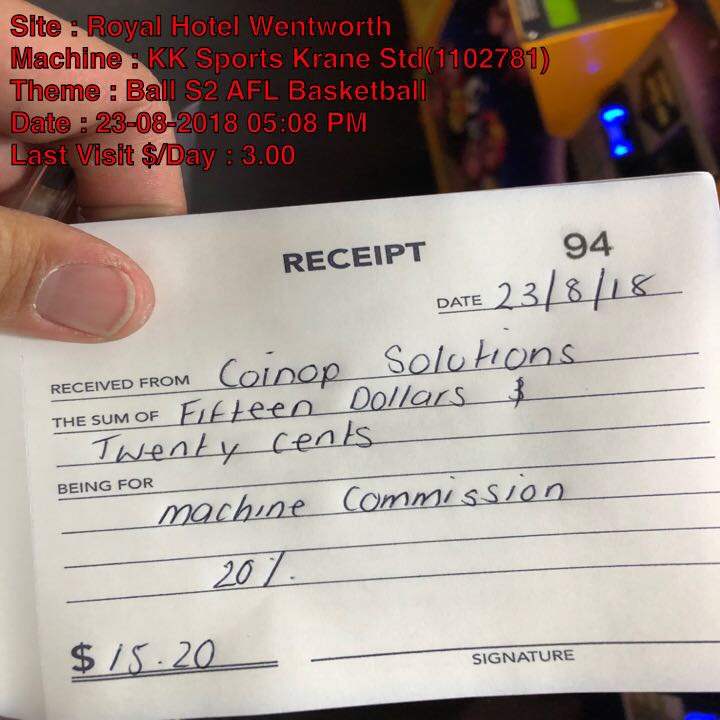 Site : Royal Hotel Wentworth
Machine : KK Sports Krane Std(1102781)
Theme : Ball S2 AFL Basketball
Date : 23-08-2018 05:08 PM
Last Visit $/Day : 3.00
RECEIPT 94
DATE 23/8/18
RECEIVED FROM Coinop Solutions
THE SUM OF Fifteen Dollars &
Twenty cents
BEING FOR
machine Commission
20%.
$ 15.20
SIGNATURE